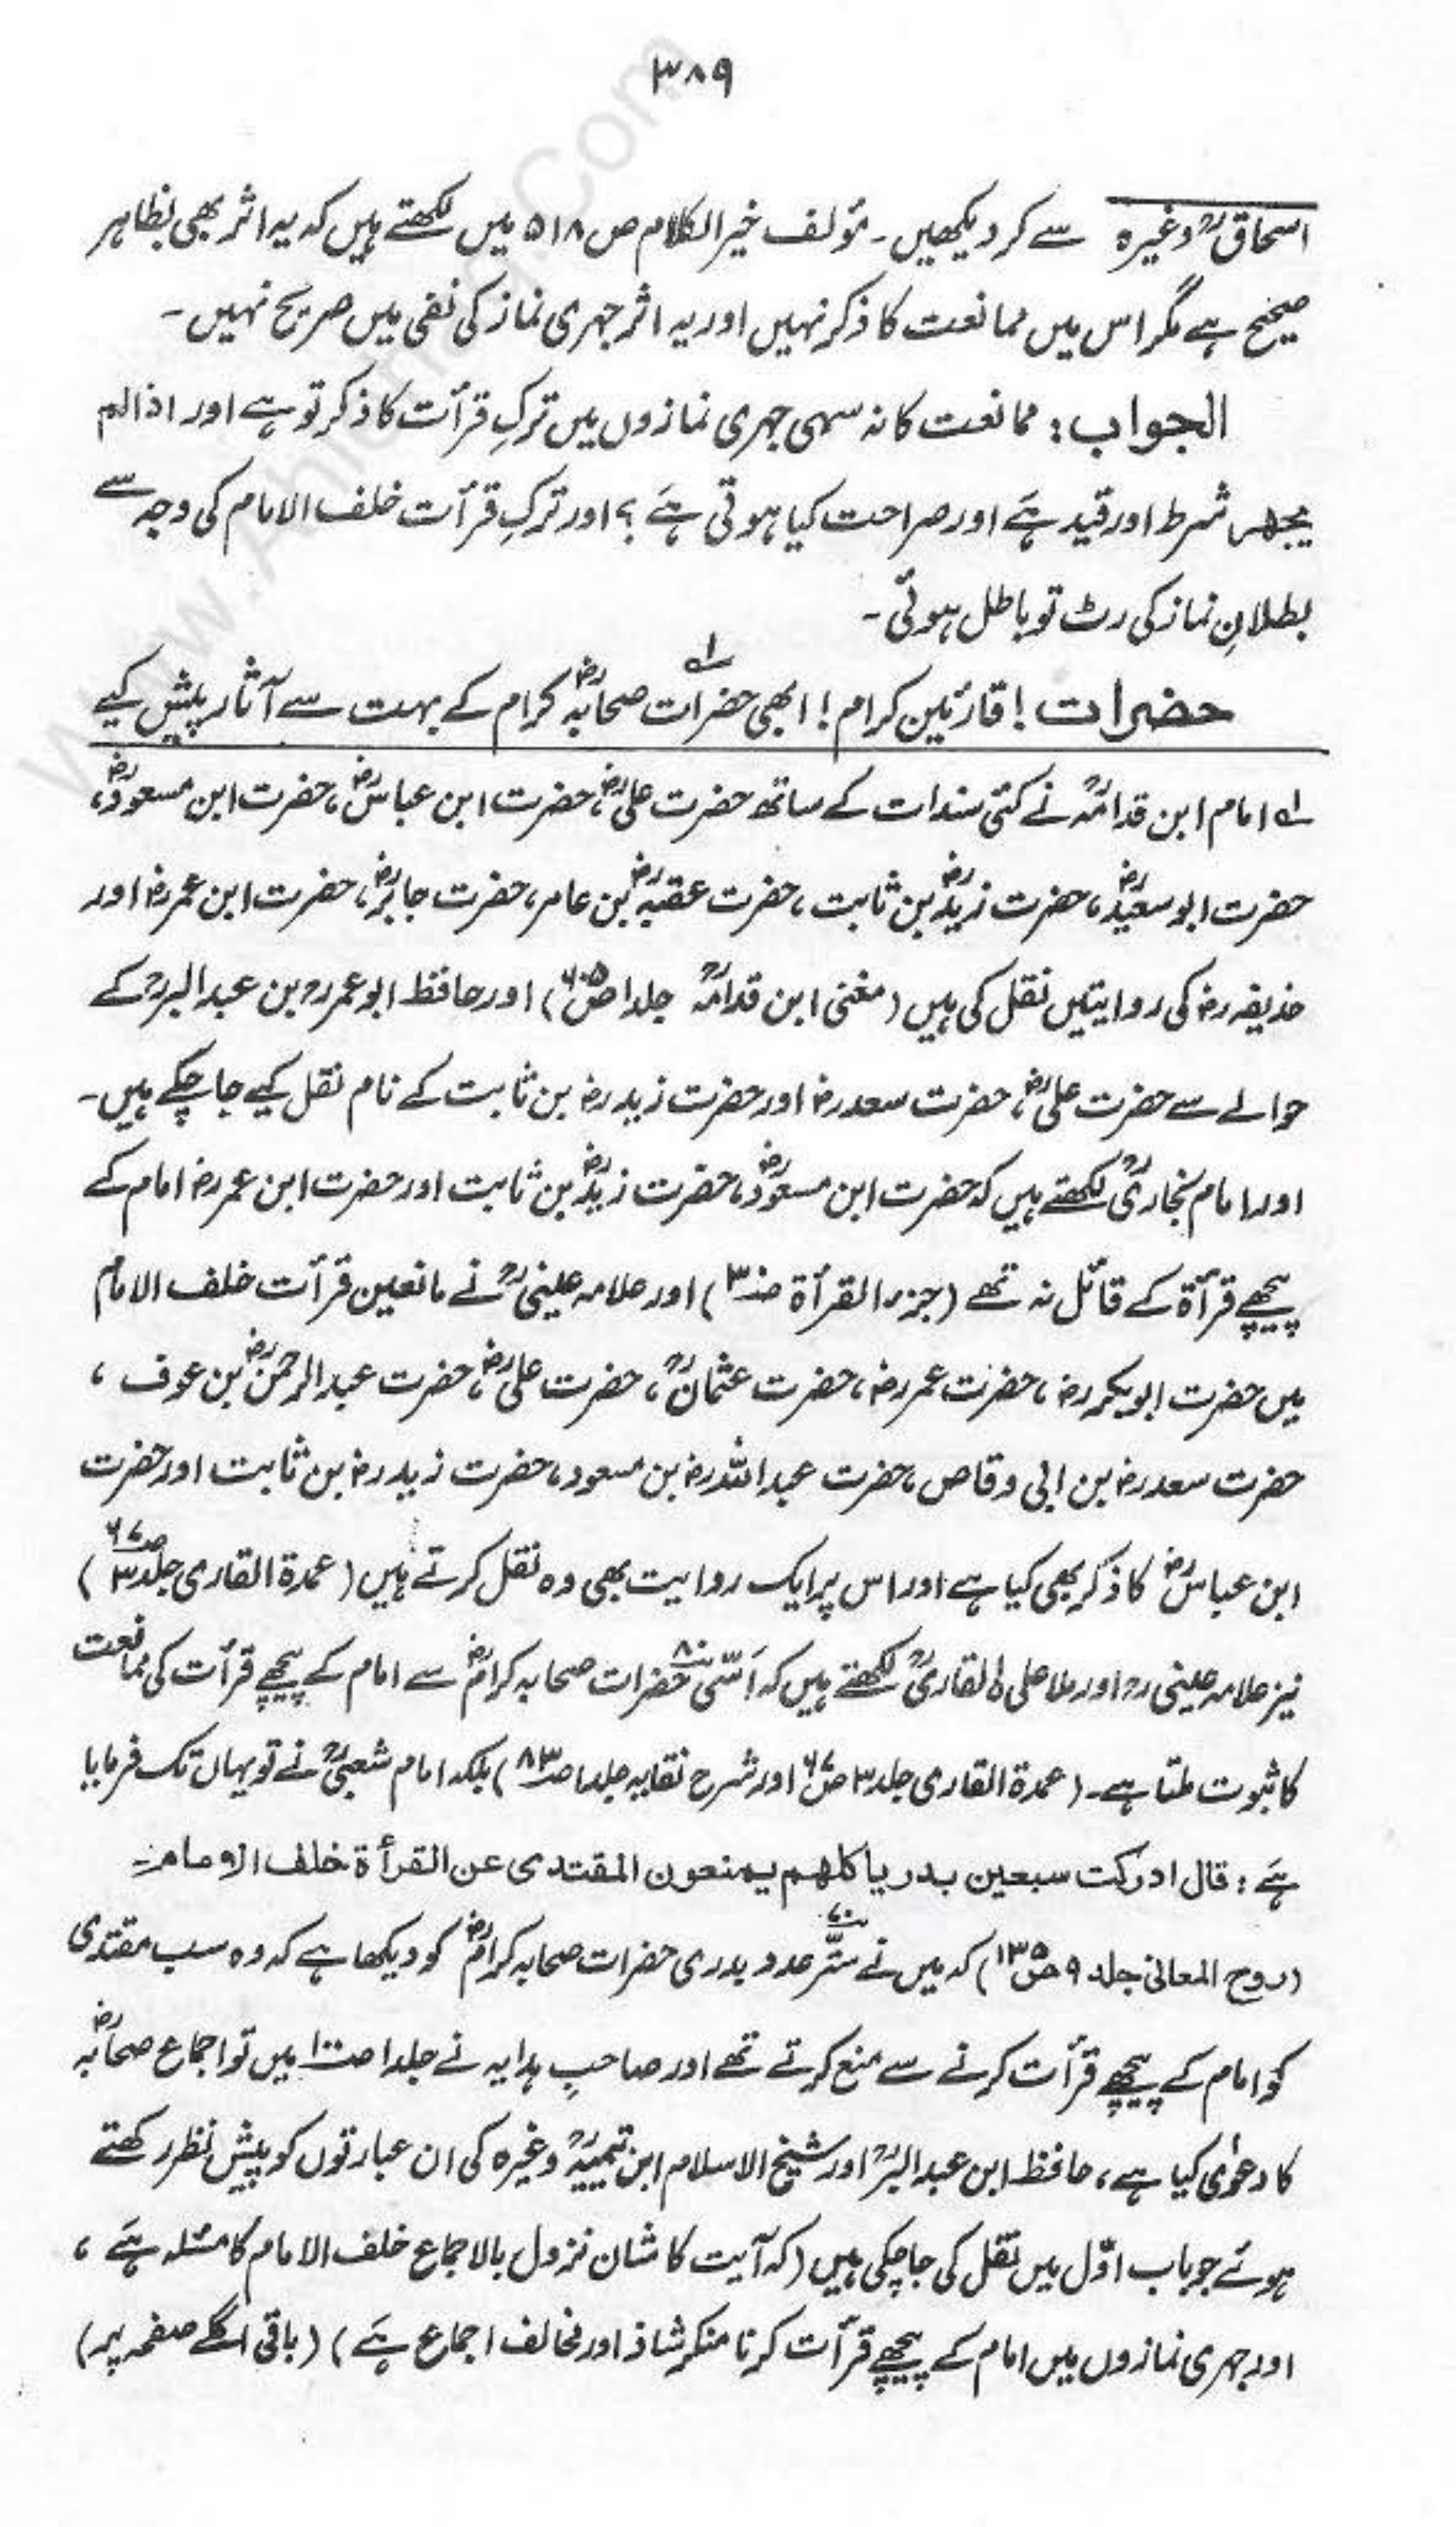 ۳۸۹
اسحاقؒ وغیرہ سے کر دیکھیں۔ مؤلف خیر الکلام ص ۵۱۸ میں لکھتے ہیں کہ یہ اثر بھی بظاہر
صحیح ہے مگر اس میں ممانعت کا ذکر نہیں اور یہ اثر جہری نماز کی نفی میں صریح نہیں۔
الجواب: ممانعت کا نہ سہی جہری نمازوں میں ترکِ قرأت کا ذکر تو ہے اور اذا لم
یجھر شرط اور قید ہَے اور صراحت کیا ہوتی ہَے ؟ اور ترکِ قرأت خلف الامام کی وجہ سے
بطلانِ نماز کی رٹ تو باطل ہوئی۔
حضرات ! قارئین کرام ! ابھی حضرات لہ صحابہؓ کرام کے بہت سے آثار پیش کیے
لہ امام ابن قدامہؒ نے کئی سندات کے ساتھ حضرت علیؓ، حضرت ابن عباسؓ، حضرت ابن مسعودؓ،
حضرت ابو سعیدؓ، حضرت زیدؓ بن ثابت، حضرت عقبہؓ بن عامر، حضرت جابرؓ، حضرت ابن عمر رضؓ اور
حذیفہ رضؓ کی روایتیں نقل کی ہیں (مغنی ابن قدامہؒ جلد ا ص ۶۰۵) اور حافظ ابو عمر رحؒ بن عبد البرؒ کے
حوالے سے حضرت علیؓ، حضرت سعد رضؓ اور حضرت زید رضؓ بن ثابت کے نام نقل کیے جا چکے ہیں۔
اور امام بخاریؒ لکھتے ہیں کہ حضرت ابن مسعودؓ، حضرت زیدؓ بن ثابت اور حضرت ابن عمر رضؓ امام کے
پیچھے قرأۃ کے قائل نہ تھے (جزء القرأۃ ) اور علامہ عینیؒ نے مانعین قرأت خلف الامام
میں حضرت ابوبکر رضؓ، حضرت عمر رضؓ، حضرت عثمانؓ، حضرت علیؓ، حضرت عبد الرحمٰنؓ بن عوف ،
حضرت سعد رضؓ بن ابی وقاص، حضرت عبد اللہ رضؓ بن مسعود، حضرت زید رضؓ بن ثابت اور حضرت
ابن عباسؓ کا ذکر بھی کیا ہے اور اس پر ایک روایت بھی وہ نقل کرتے ہیں (عمدۃ القاری جلد ۳ ص ۶۷)
نیز علامہ عینی رحؒ اور ملا علی ن القاریؒ لکھتے ہیں کہ اَسّی ۸۰ حضرات صحابہ کرامؓ سے امام کے پیچھے قرأت کی ممانعت
کا ثبوت ملتا ہے۔ (عمدۃ القاری جلد ۳ ص ۶۷ اور شرح نقایہ جلد ا ص ۸۳) بلکہ امام شعبیؒ نے تو یہاں تک فرمایا
ہَے : قال ادرکت سبعین بدریا کلھم یمنعون المقتدی عن القرأۃ خلف الامام۔
(روح المعانی جلد ۹ ص ۱۳۵) کہ میں نے ستّر ۷۰ عدد بدری حضرات صحابہ کرامؓ کو دیکھا ہے کہ وہ سب مقتدی
کو امام کے پیچھے قرأت کرنے سے منع کرتے تھے اور صاحبِ ہدایہ نے جلد ا میں تو اجماع صحابہؓ
کا دعوٰی کیا ہے، حافظ ابن عبد البرؒ اور شیخ الاسلام ابن تیمیہؒ وغیرہ کی ان عبارتوں کو پیش نظر رکھتے
ہوئے جو باب اوّل میں نقل کی جا چکی ہیں (کہ آیت کا شان نزول بالاجماع خلف الامام کا مسئلہ ہَے ،
اور جہری نمازوں میں امام کے پیچھے قرأت کرنا منکر شاذ اور مخالف اجماع ہَے ) (باقی اگلے صفحہ پر)